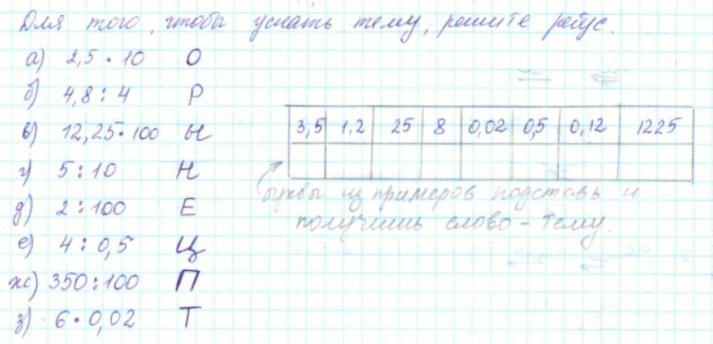 Для того, чтобы узнать тему, решите ребус.
а) 2,5 · 10 О
б) 4,8 : 4 Р
в) 12,25 · 100 Ы
г) 5 : 10 Н
д) 2 : 100 Е
е) 4 : 0,5 Ц
ж) 350 : 100 П
з) 6 · 0,02 Т
3,5 1,2 25 8 0,02 0,5 0,12 1225
буквы из примеров подставь и
получишь слово - тему.